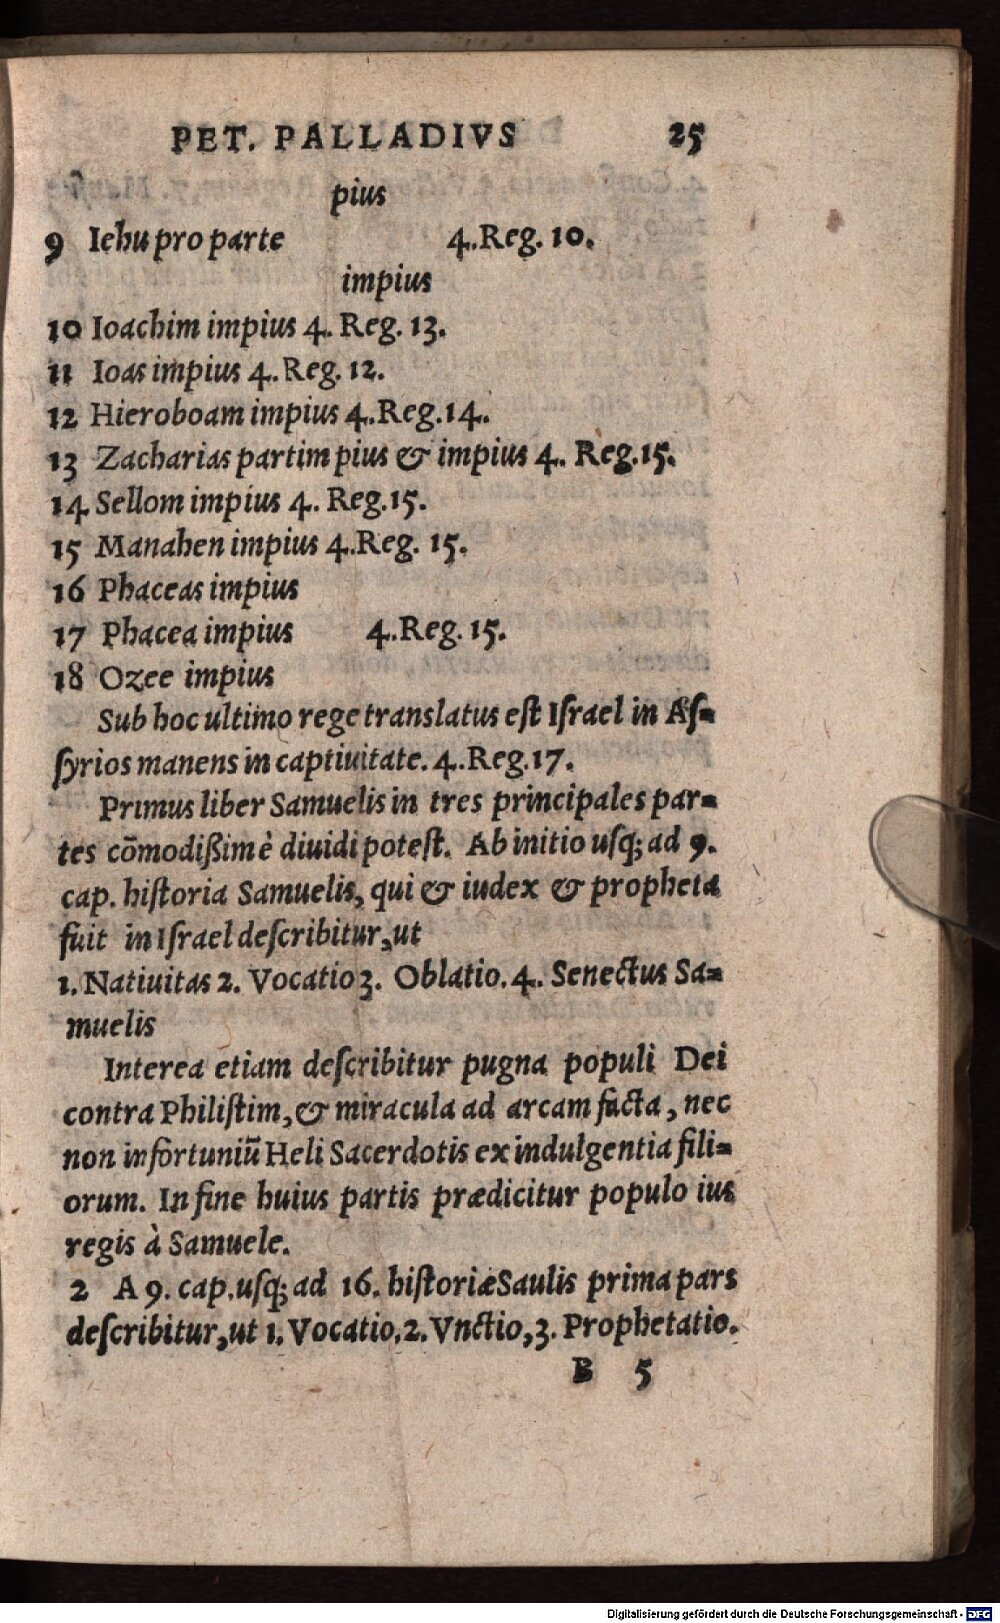 PET. PALLADIVS 25
pius
9 Iehu pro parte 4.Reg. 10.
impius
10 Ioachim impius 4. Reg. 13.
11 Ioas impius 4. Reg. 12.
12 Hieroboam impius 4.Reg.14.
13 Zacharias partim pius & impius 4. Reg.15.
14 Sellom impius 4. Reg.15.
15 Manahen impius 4.Reg. 15.
16 Phaceas impius
17 Phacea impius 4.Reg. 15.
18 Ozee impius
Sub hoc ultimo rege translatus eſt Iſrael in Aſ=
ſyrios manens in captiuitate. 4.Reg.17.
Primus liber Samuelis in tres principales par=
tes cōmodißimè diuidi poteſt. Ab initio uſq; ad 9.
cap. hiſtoria Samuelis, qui & iudex & propheta
fuit in Iſrael deſcribitur, ut
1. Natiuitas 2. Vocatio 3. Oblatio. 4. Senectus Sa=
muelis
Interea etiam deſcribitur pugna populi Dei
contra Philiſtim, & miracula ad arcam facta, nec
non infortuniū Heli Sacerdotis ex indulgentia fili=
orum. In fine huius partis prædicitur populo ius
regis à Samuele.
2 A 9. cap. uſq; ad 16. hiſtoriæ Saulis prima pars
deſcribitur, ut 1. Vocatio. 2. Vnctio, 3. Prophetatio.
B 5
Digitalisierung gefördert durch die Deutsche Forschungsgemeinschaft - DFG